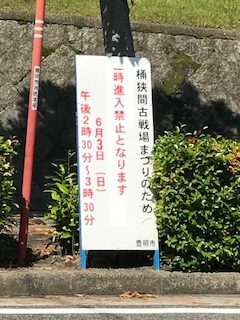 桶狭間古戦場まつりのため
一時進入禁止となります
6月3日（日）
午後2時30分～3時30分
豊明市